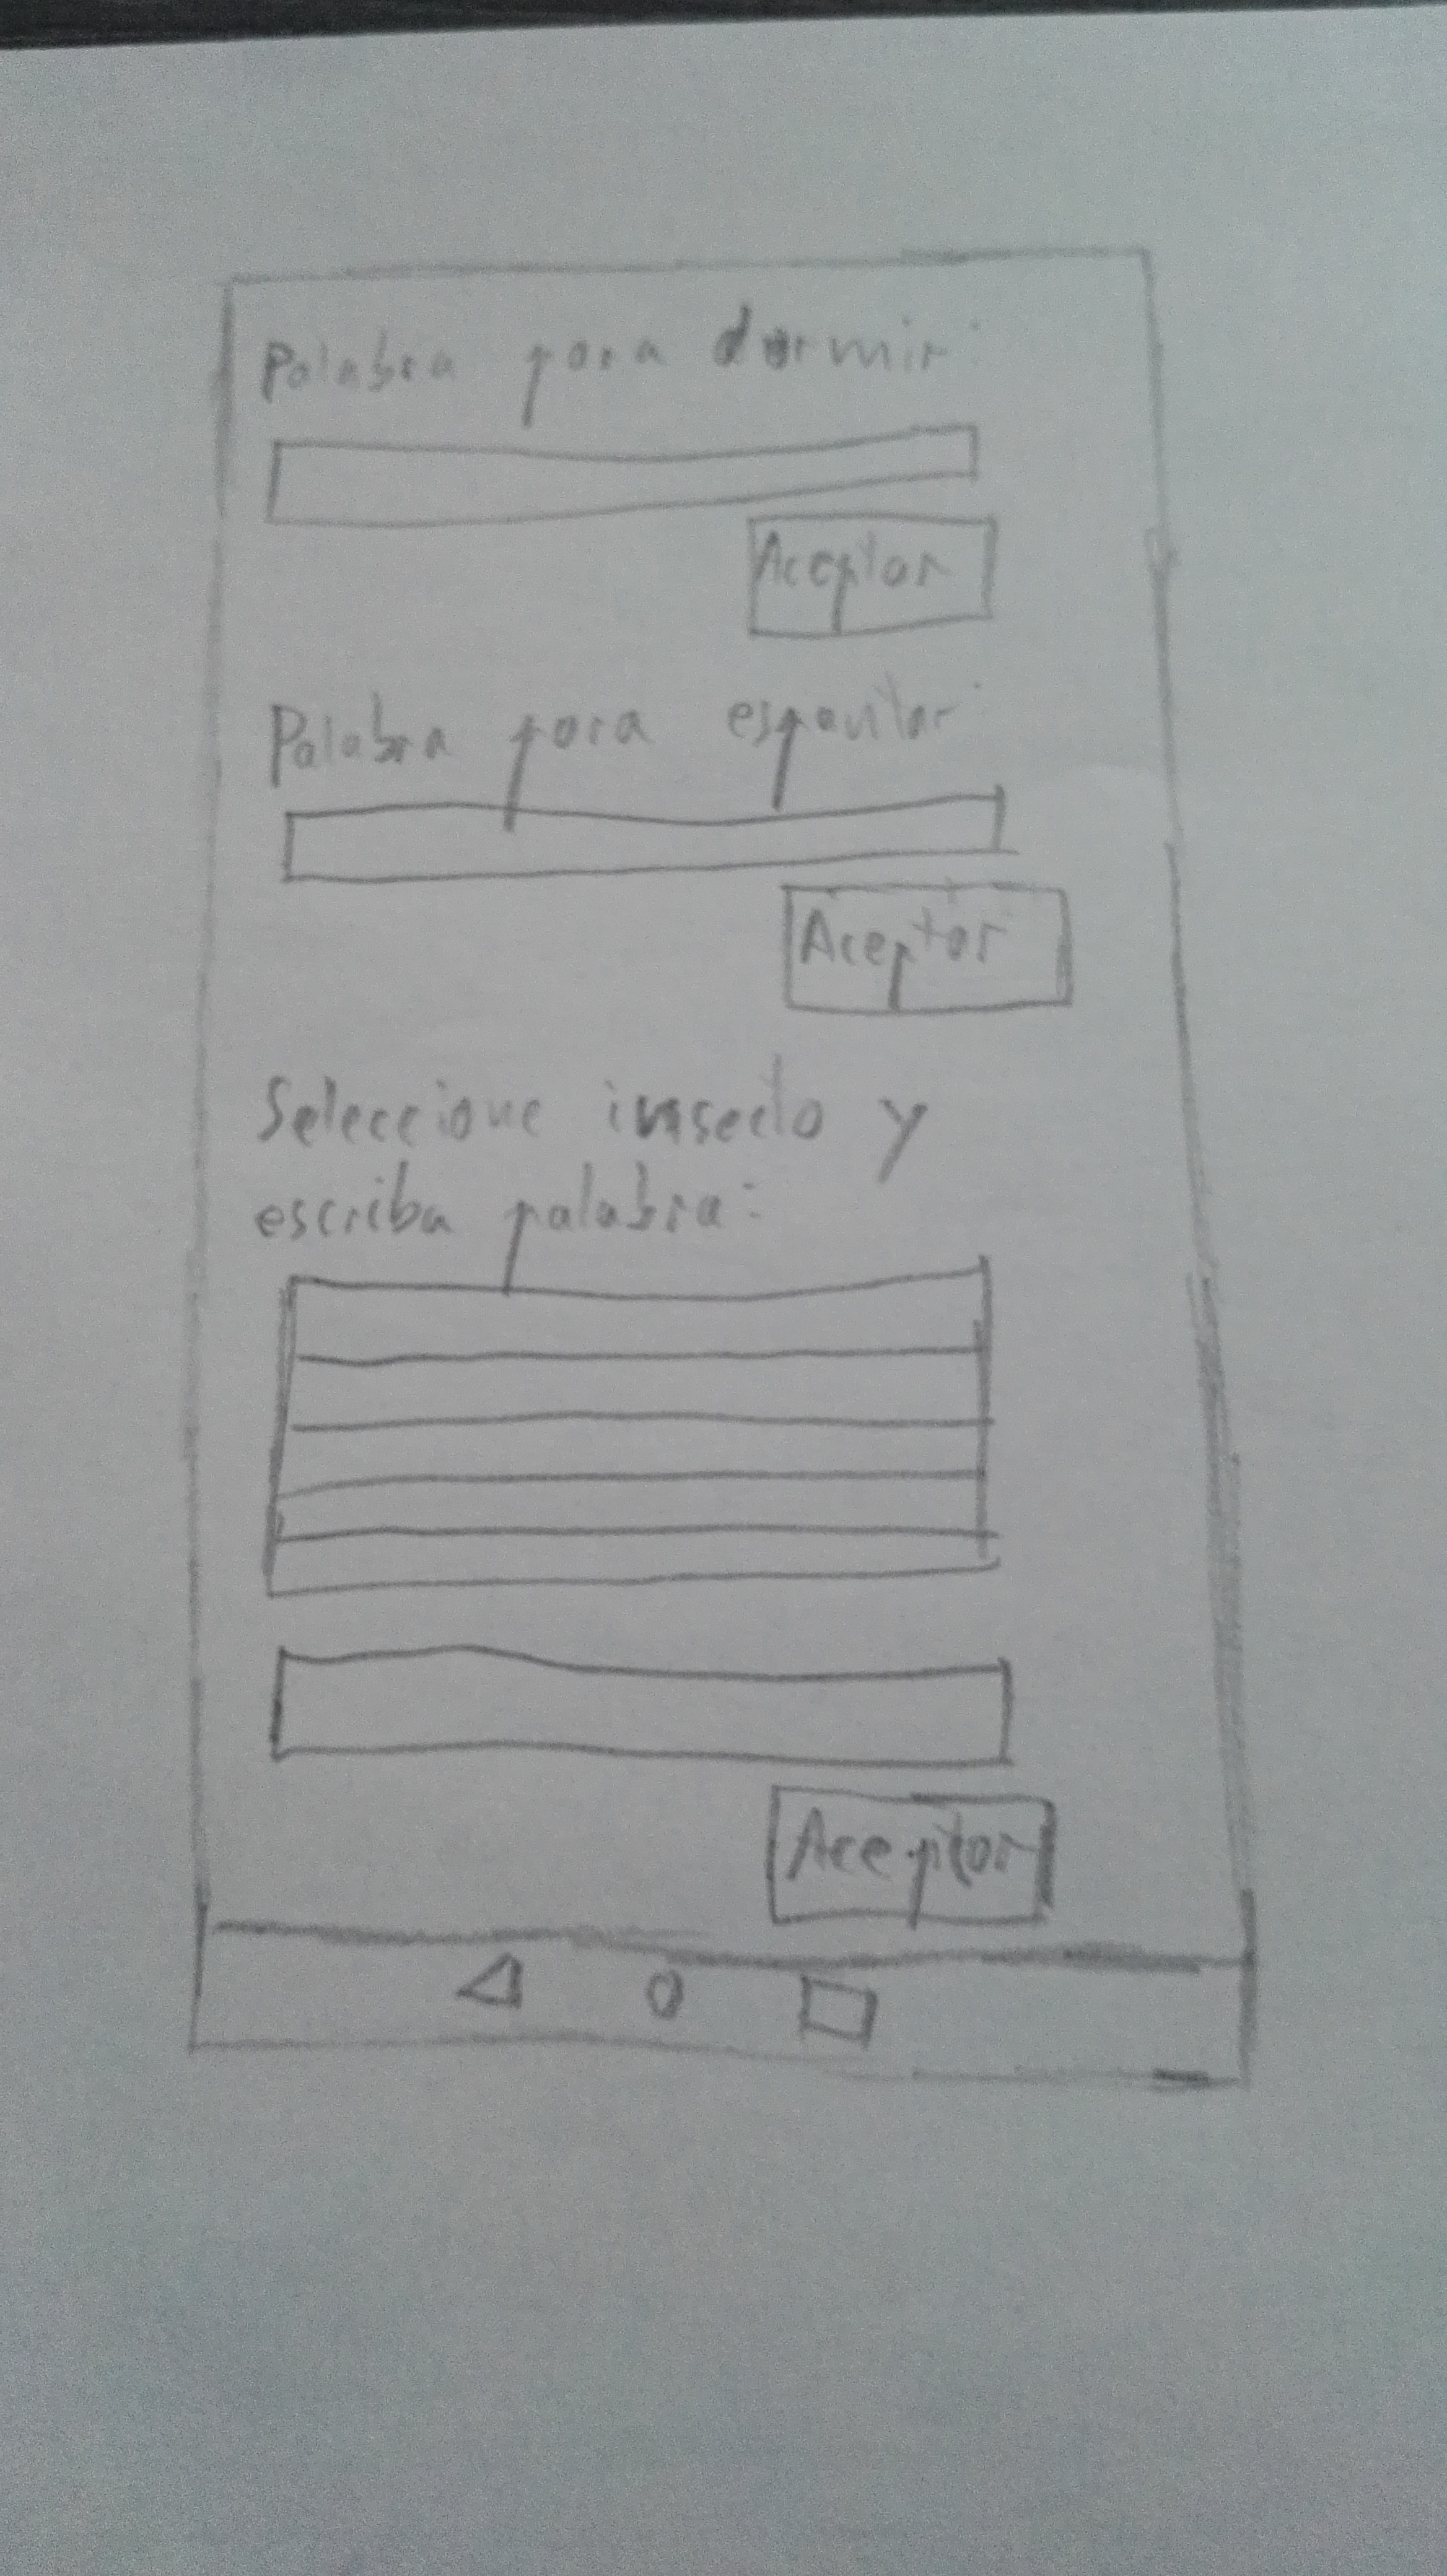 Palabra para dormir:
Aceptar
Palabra para espantar:
Aceptar
Seleccione insecto y
escriba palabra:
Aceptar